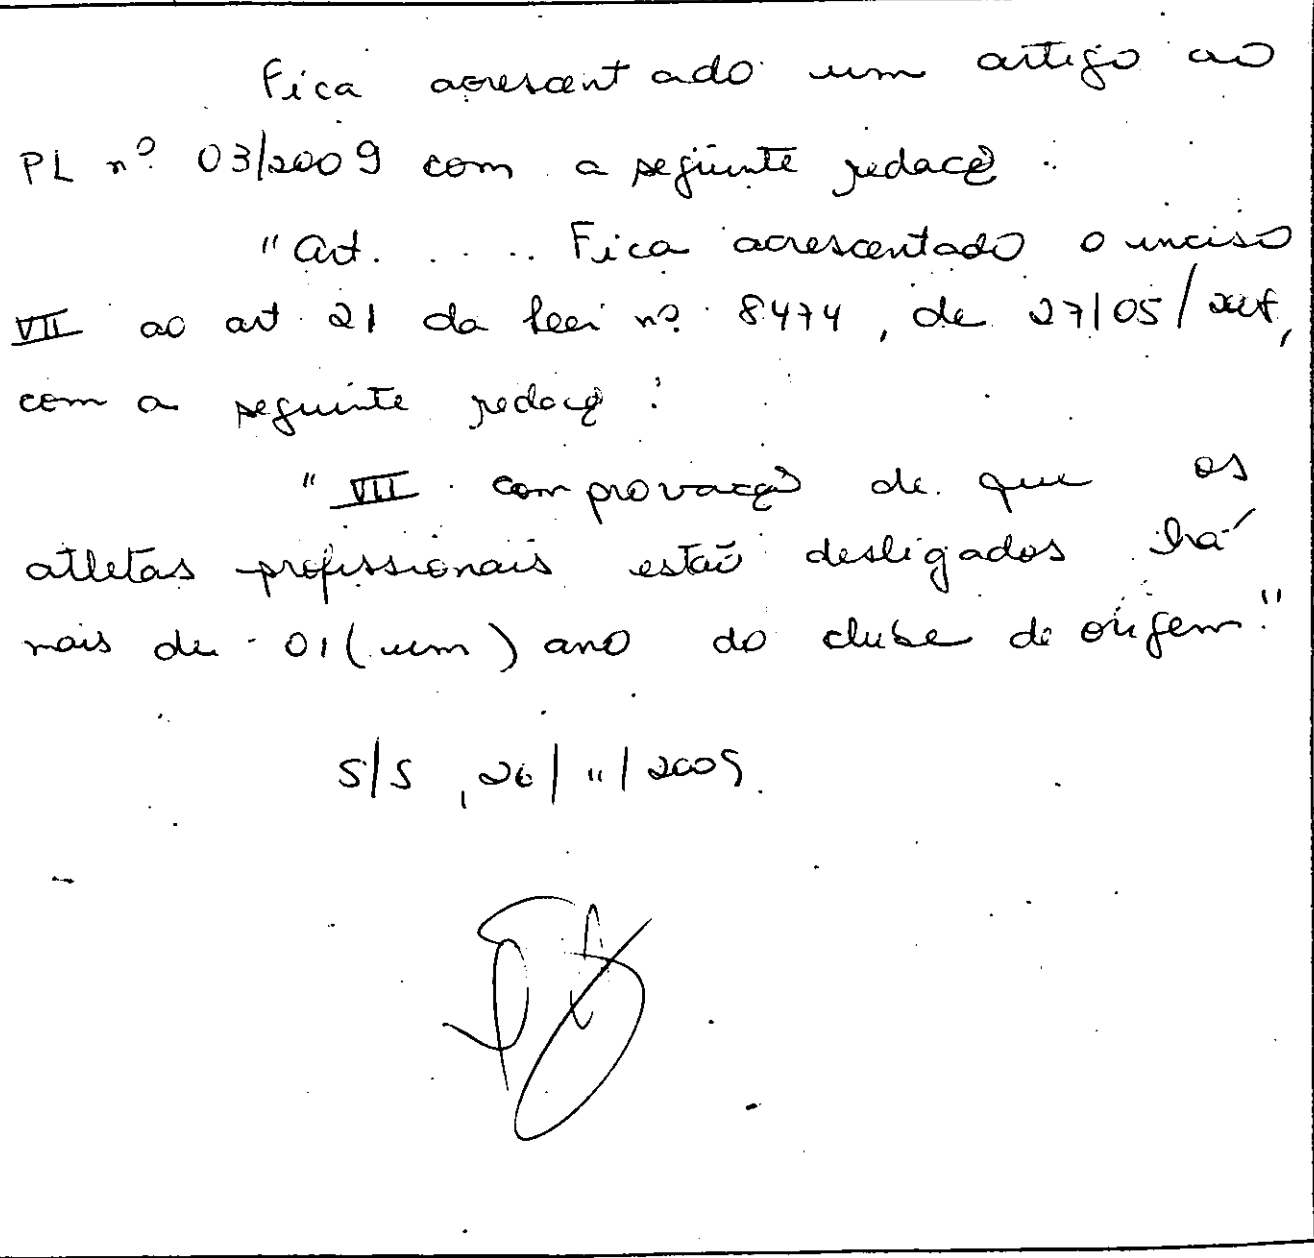 Fica acrescentado um artigo ao
PL nº 03/2009 com a seguinte redaçõ :
"Art. . . . . . Fica acrescentado o inciso
VII ao art 21 da Lei nº 8474, de 27/05/
com a seguinte redaçõ :
"VII comprovação de que os
atletas profissionais estão desligados há
mais de 01 (um) ano do clube de origem."
S/S , 26/11/2009.